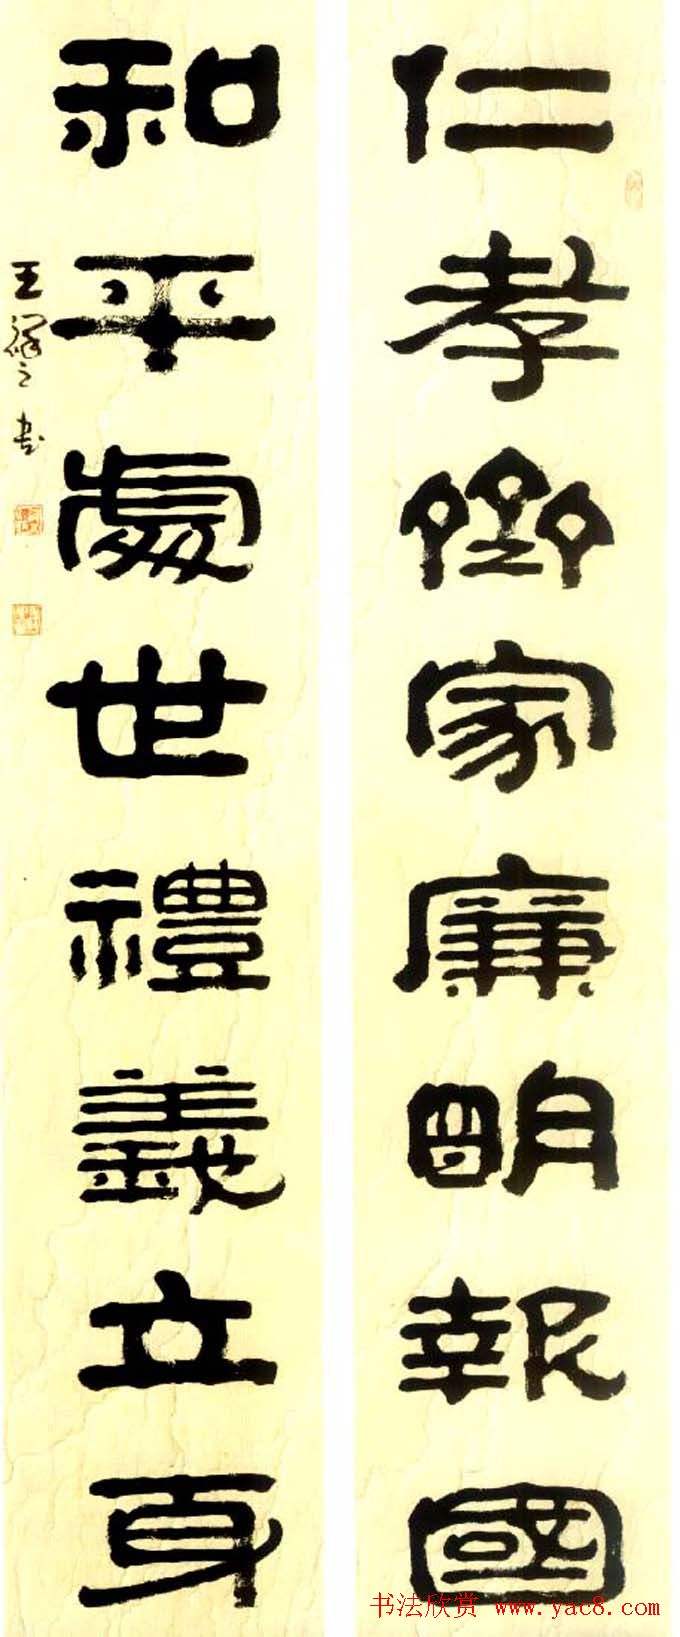 仁孝齊家廉明報國
和平處世禮義立身
王 之书
书法欣赏 www.yac8.com